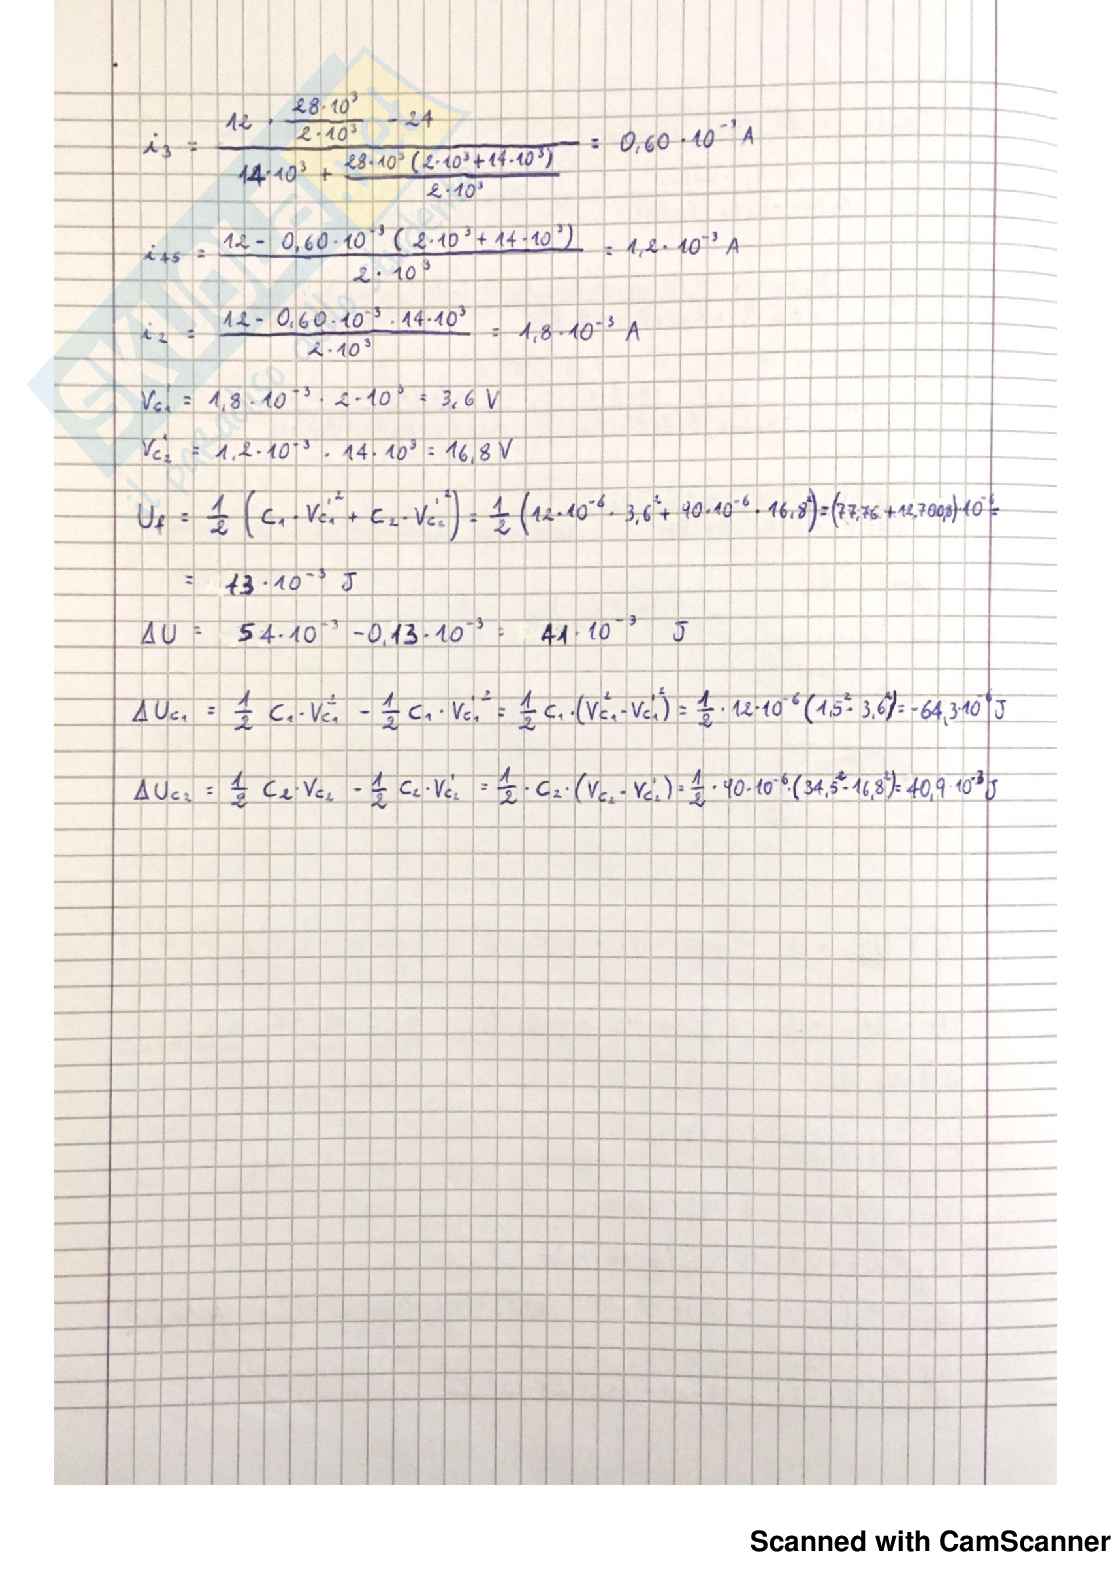 i₃ = (12 · (28·10³)/(2·10³) - 24) / (14·10³ + (28·10³ (2·10³+14·10³))/(2·10³)) = 0,60 · 10⁻³ A
i₄₅ = (12 - 0,60·10⁻³ (2·10³ + 14·10³)) / (2·10³) = 1,2·10⁻³ A
i₂ = (12 - 0,60·10⁻³ · 14·10³) / (2·10³) = 1,8·10⁻³ A
V'c₁ = 1,8·10⁻³ · 2·10³ = 3,6 V
V'c₂ = 1,2·10⁻³ · 14·10³ = 16,8 V
Uf = 1/2 (C₁ · V'c₁² + C₂ · V'c₂²) = 1/2 (12·10⁻⁶ · 3,6² + 90·10⁻⁶ · 16,8²) = (77,76 + 12,700,8)·10⁻⁶ =
= 13·10⁻³ J
ΔU = 54·10⁻³ - 0,13·10⁻³ = 41·10⁻³ J
ΔUc₁ = 1/2 C₁·Vc₁² - 1/2 C₁·V'c₁² = 1/2 C₁·(Vc₁² - V'c₁²) = 1/2 · 12·10⁻⁶ (1,5² - 3,6²) = -64,3·10⁻⁶ J
ΔUc₂ = 1/2 C₂·Vc₂ - 1/2 C₂·V'c₂ = 1/2 · C₂·(Vc₂ - V'c₂) = 1/2 · 90·10⁻⁶·(34,5² - 16,8²) = 40,9·10⁻³ J
Scanned with CamScanner